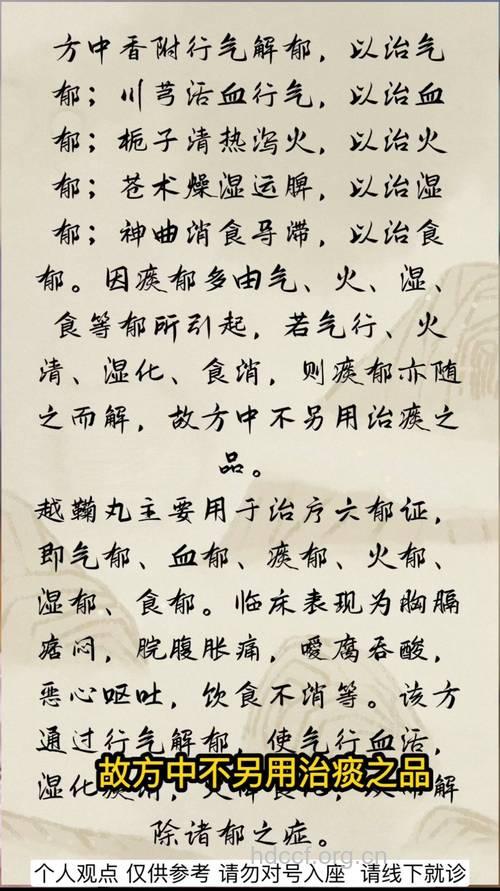 方中香附行气解郁，以治气
郁；川芎活血行气，以治血
郁；栀子清热泻火，以治火
郁；苍术燥湿运脾，以治湿
郁；神曲消食导滞，以治食
郁。因痰郁多由气、火、湿、
食等郁所引起，若气行、火
清、湿化、食消，则痰郁亦随
之而解，故方中不另用治痰之
品。
越鞠丸主要用于治疗六郁证，
即气郁、血郁、痰郁、火郁、
湿郁、食郁。临床表现为胸膈
痞闷，脘腹胀痛，嗳腐吞酸，
恶心呕吐，饮食不消等。该方
通过行气解郁，使气行血活，
湿化
故方中不另用治痰之品
解
除诸郁之症。
hdccf.org.cn
个人观点 仅供参考 请勿对号入座 请线下就诊